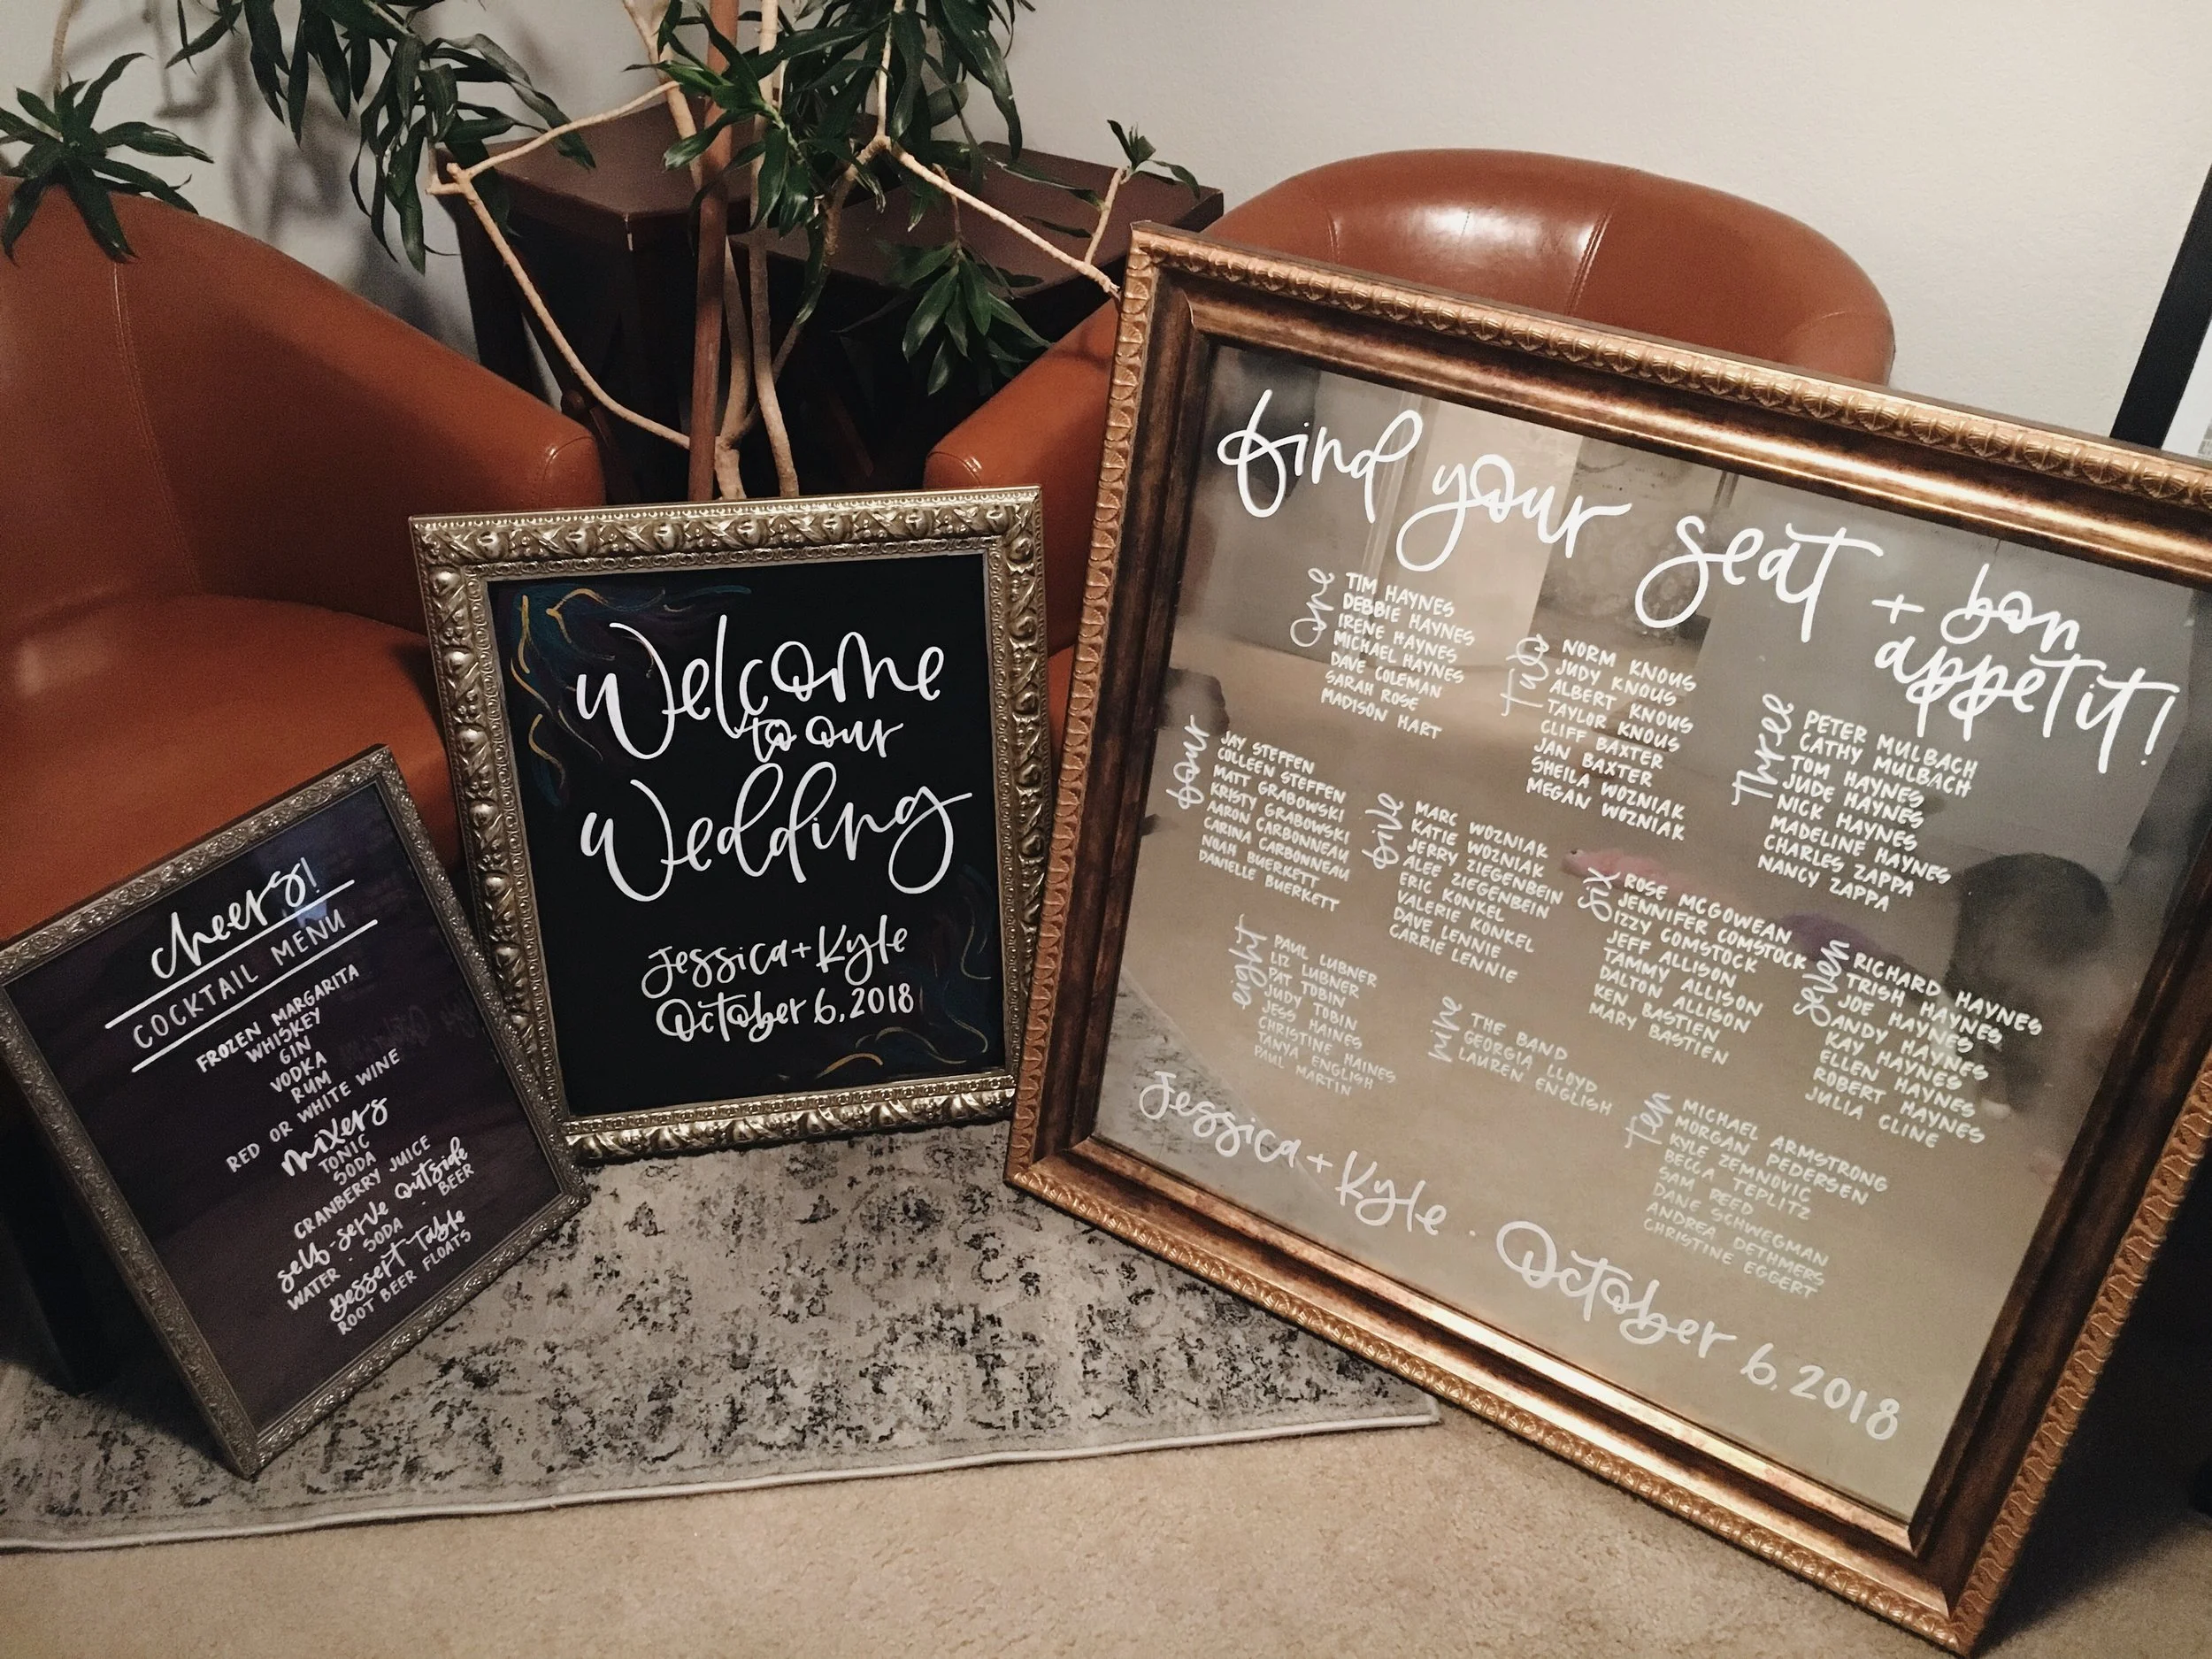 cheers!
COCKTAIL MENU
FROZEN MARGARITA
WHISKEY
GIN
VODKA
RUM
RED OR WHITE WINE
mixers
TONIC
SODA
CRANBERRY JUICE
self-serve outside
WATER · SODA · BEER
Dessert Table
ROOT BEER FLOATS
Welcome
to our
Wedding
Jessica + Kyle
October 6, 2018
find your seat + bon
appetit!
One
TIM HAYNES
DEBBIE HAYNES
IRENE HAYNES
MICHAEL HAYNES
DAVE COLEMAN
SARAH ROSE
MADISON HART
Two
NORM KNOUS
JUDY KNOUS
ALBERT KNOUS
TAYLOR KNOUS
CLIFF BAXTER
JAN BAXTER
SHEILA WOZNIAK
MEGAN WOZNIAK
Three
PETER MULBACH
CATHY MULBACH
TOM HAYNES
JUDE HAYNES
NICK HAYNES
MADELINE HAYNES
CHARLES ZAPPA
NANCY ZAPPA
four
JAY STEFFEN
COLLEEN STEFFEN
MATT GRABOWSKI
KRISTY GRABOWSKI
AARON CARBONNEAU
CARINA CARBONNEAU
NOAH BUERKETT
DANIELLE BUERKETT
five
MARC WOZNIAK
KATIE WOZNIAK
JERRY ZIEGENBEIN
ALEE ZIEGENBEIN
ERIC KONKEL
VALERIE KONKEL
DAVE LENNIE
CARRIE LENNIE
six
ROSE MCGOWEAN
JENNIFER COMSTOCK
IZZY COMSTOCK
JEFF ALLISON
TAMMY ALLISON
DALTON ALLISON
KEN BASTIEN
MARY BASTIEN
seven
RICHARD HAYNES
TRISH HAYNES
JOE HAYNES
ANDY HAYNES
KAY HAYNES
ELLEN HAYNES
ROBERT HAYNES
JULIA CLINE
eight
PAUL LUBNER
LIZ LUBNER
PAT TOBIN
JUDY TOBIN
JESS HAINES
CHRISTINE HAINES
TANYA ENGLISH
PAUL MARTIN
nine
THE BAND
GEORGIA LLOYD
LAUREN ENGLISH
Ten
MICHAEL ARMSTRONG
MORGAN PEDERSEN
KYLE ZEMNOVIC
BECCA TEPLITZ
SAM REED
DANE SCHWEGMAN
ANDREA DETHMERS
CHRISTINE EGGERT
Jessica + Kyle · October 6, 2018